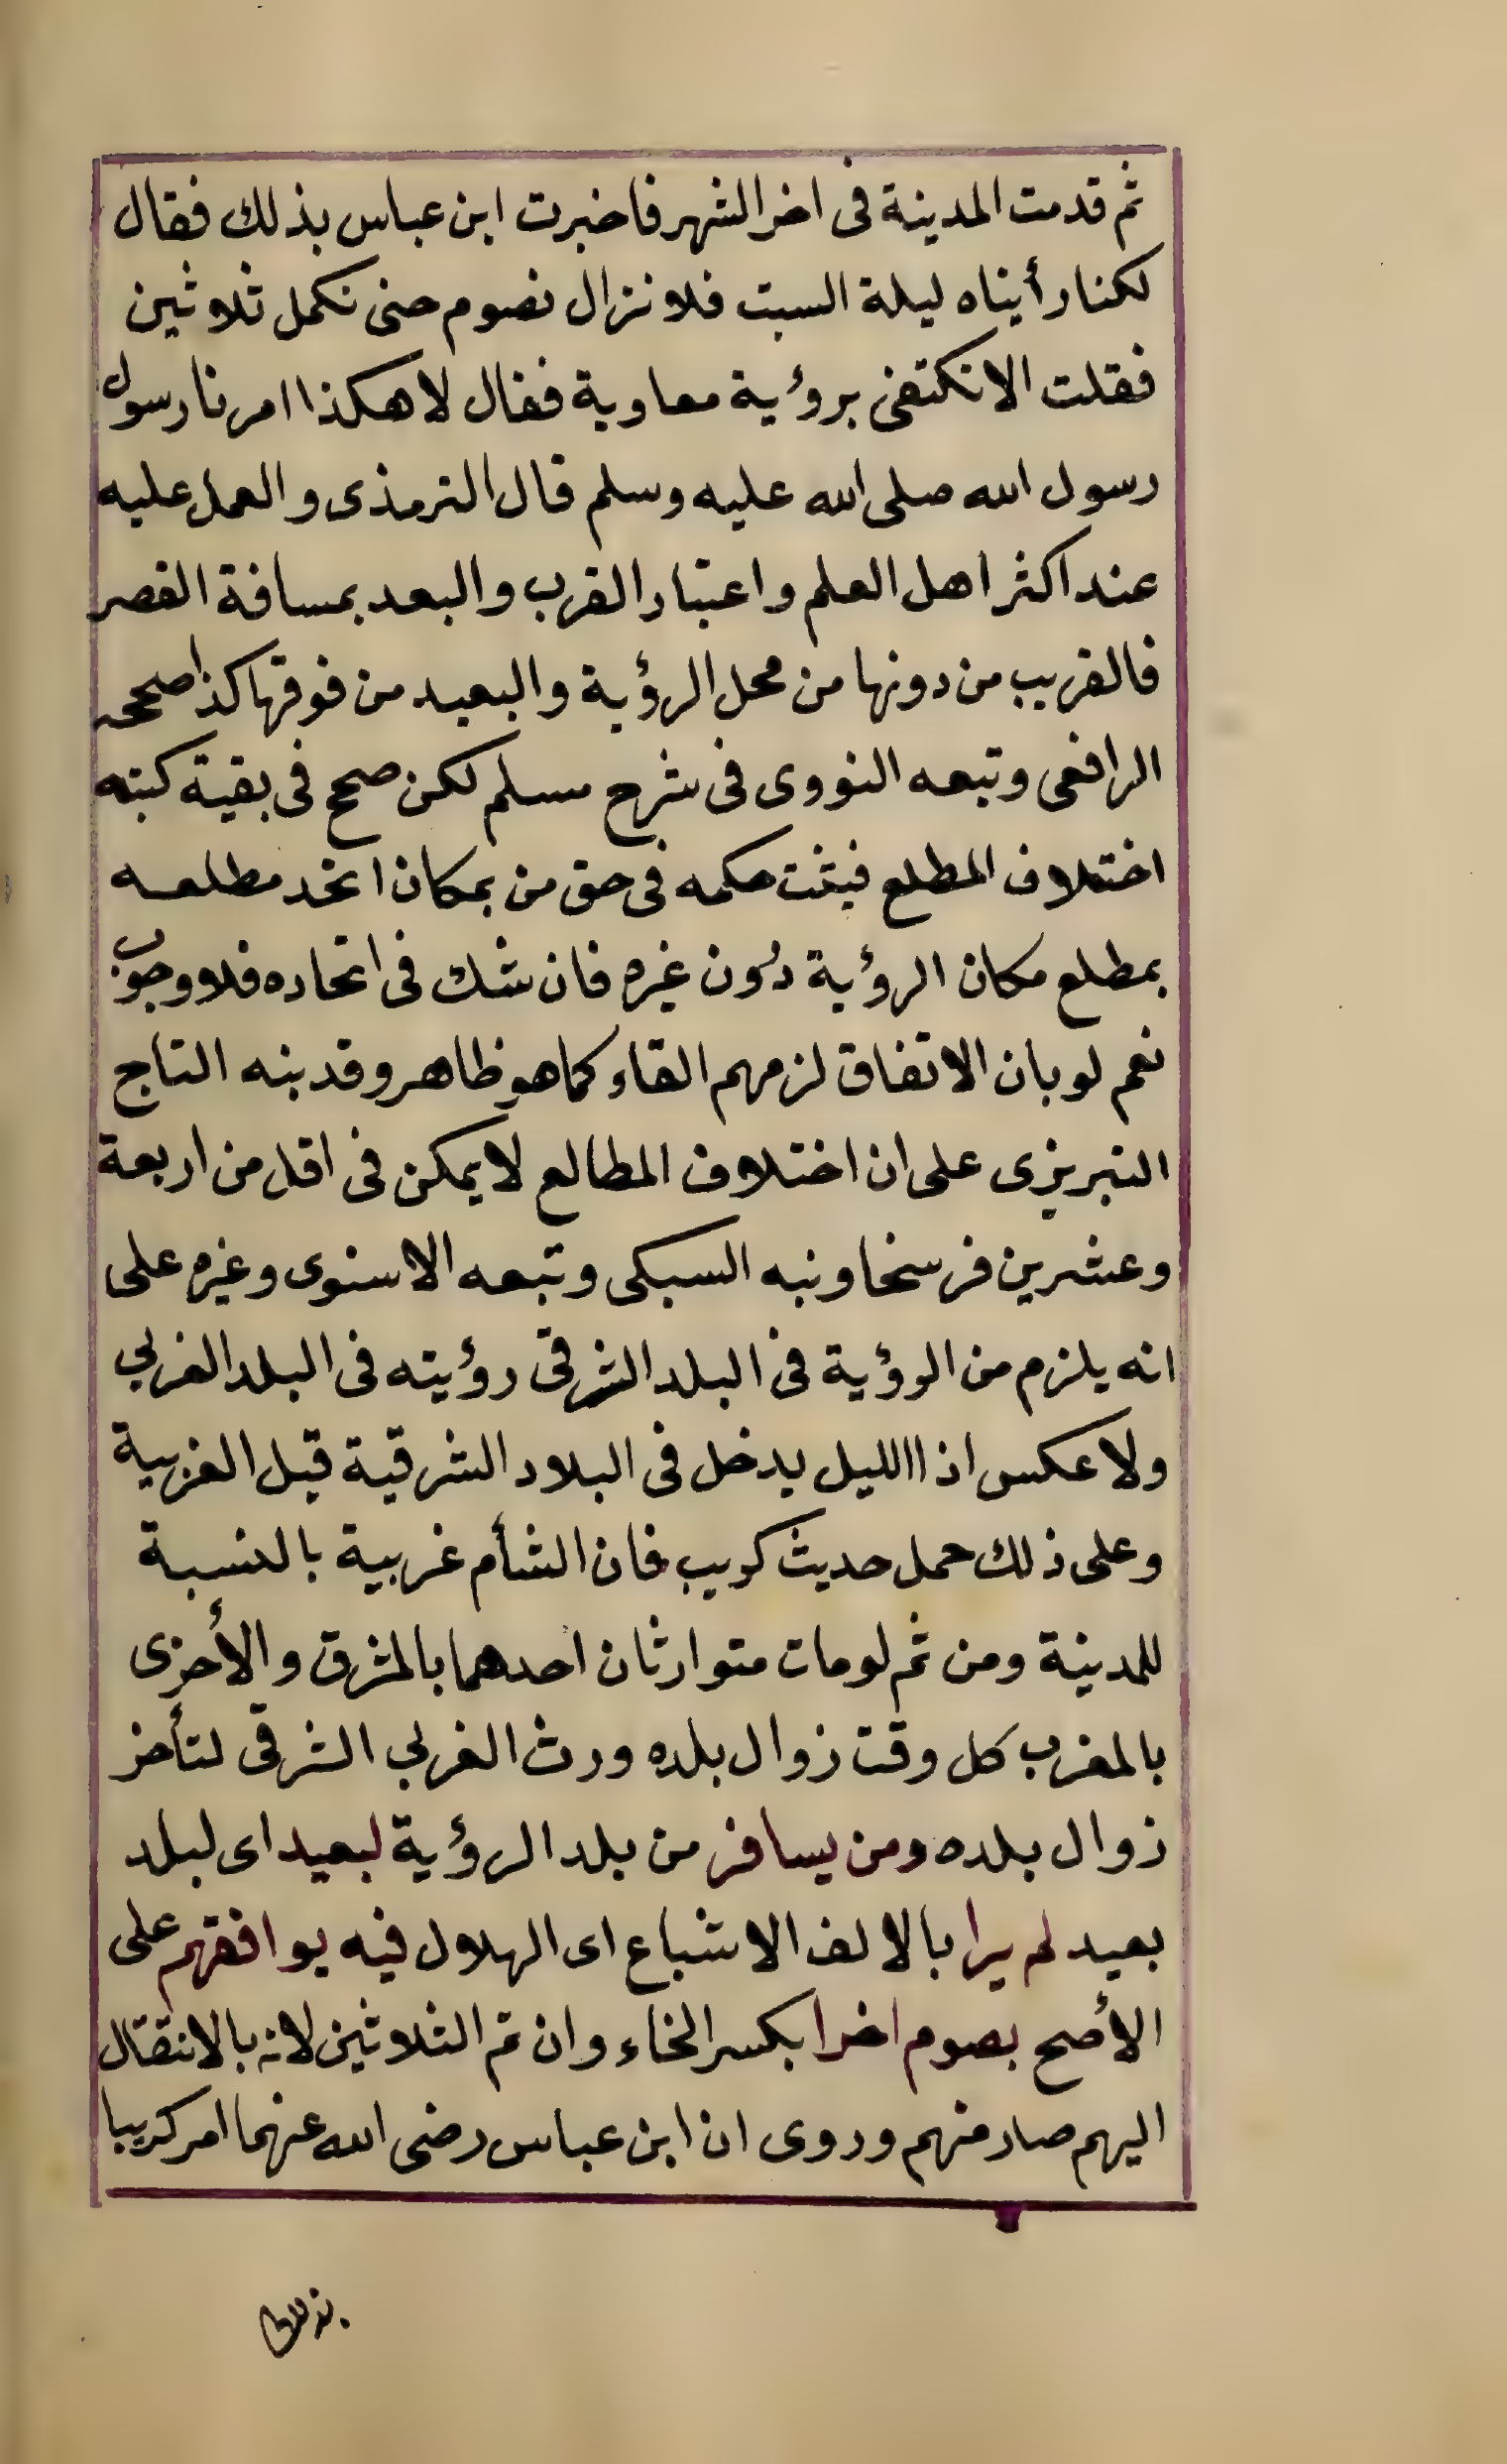 ثم قدمت المدينة فى اخر الشهر فاخبرت ابن عباس بذلك فقال
لكنا رأيناه ليلة السبت فلا نزال نصوم حتى نكمل ثلاثين
فقلت الا نكتفى برؤية معاوية فقال لا هكذا امرنا رسول
رسول الله صلى الله عليه وسلم قال الترمذى والعمل عليه
عند اكثر اهل العلم واعتبار القرب والبعد بمسافة القصر
فالقريب من دونها من محل الرؤية والبعيد من فوقها كذا صححه
الرافعى وتبعه النووى فى شرح مسلم لكن صحح فى بقية كتبه
اختلاف المطلع فيثبت حكمه فى حق من بمكان اتحد مطلعه
بمطلع مكان الرؤية دون غيره فان شك فى اتحاده فلا وجوب
نعم لو بان الاتفاق لزمهم القاء كما هو ظاهر وقد بنه التاج
التبريزى على ان اختلاف المطالع لا يمكن فى اقل من اربعة
وعشرين فرسخا ونبه السبكى وتبعه الاسنوى وغيره على
انه يلزم من الرؤية فى البلد الشرقى رؤيته فى البلد الغربي
ولا عكس اذ االليل يدخل فى البلاد الشرقية قبل الغربية
وعلى ذلك حمل حديث كريب فان الشأم غربية بالنسبة
للمدينة ومن ثم لو مات متوارثان احدهما بالمشرق والأخرى
بالمغرب كل وقت زوال بلده ورث الغربي الشرقى لتأخر
زوال بلده ومن يسافر من بلد الرؤية لبعيد اى لبلد
بعيد لم يرا بالالف الاشباع اى الهلال فيه يوافقهم على
الأصح بصوم اخرا بكسر الخاء وان تم الثلاثين لانه بالانتقال
اليهم صار منهم وروى ان ابن عباس رضى الله عنهما امر كريبا
بذلك